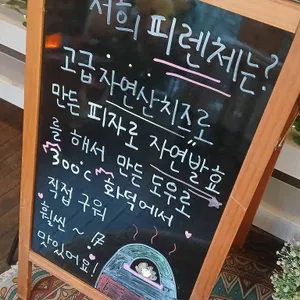 저희 피렌체는?
고급 자연산치즈로
만든 피자로 자연발효
를 해서 만든 도우로
300℃ 화덕에서
직접 구워
훨씬 ~ !?
맛있어요!